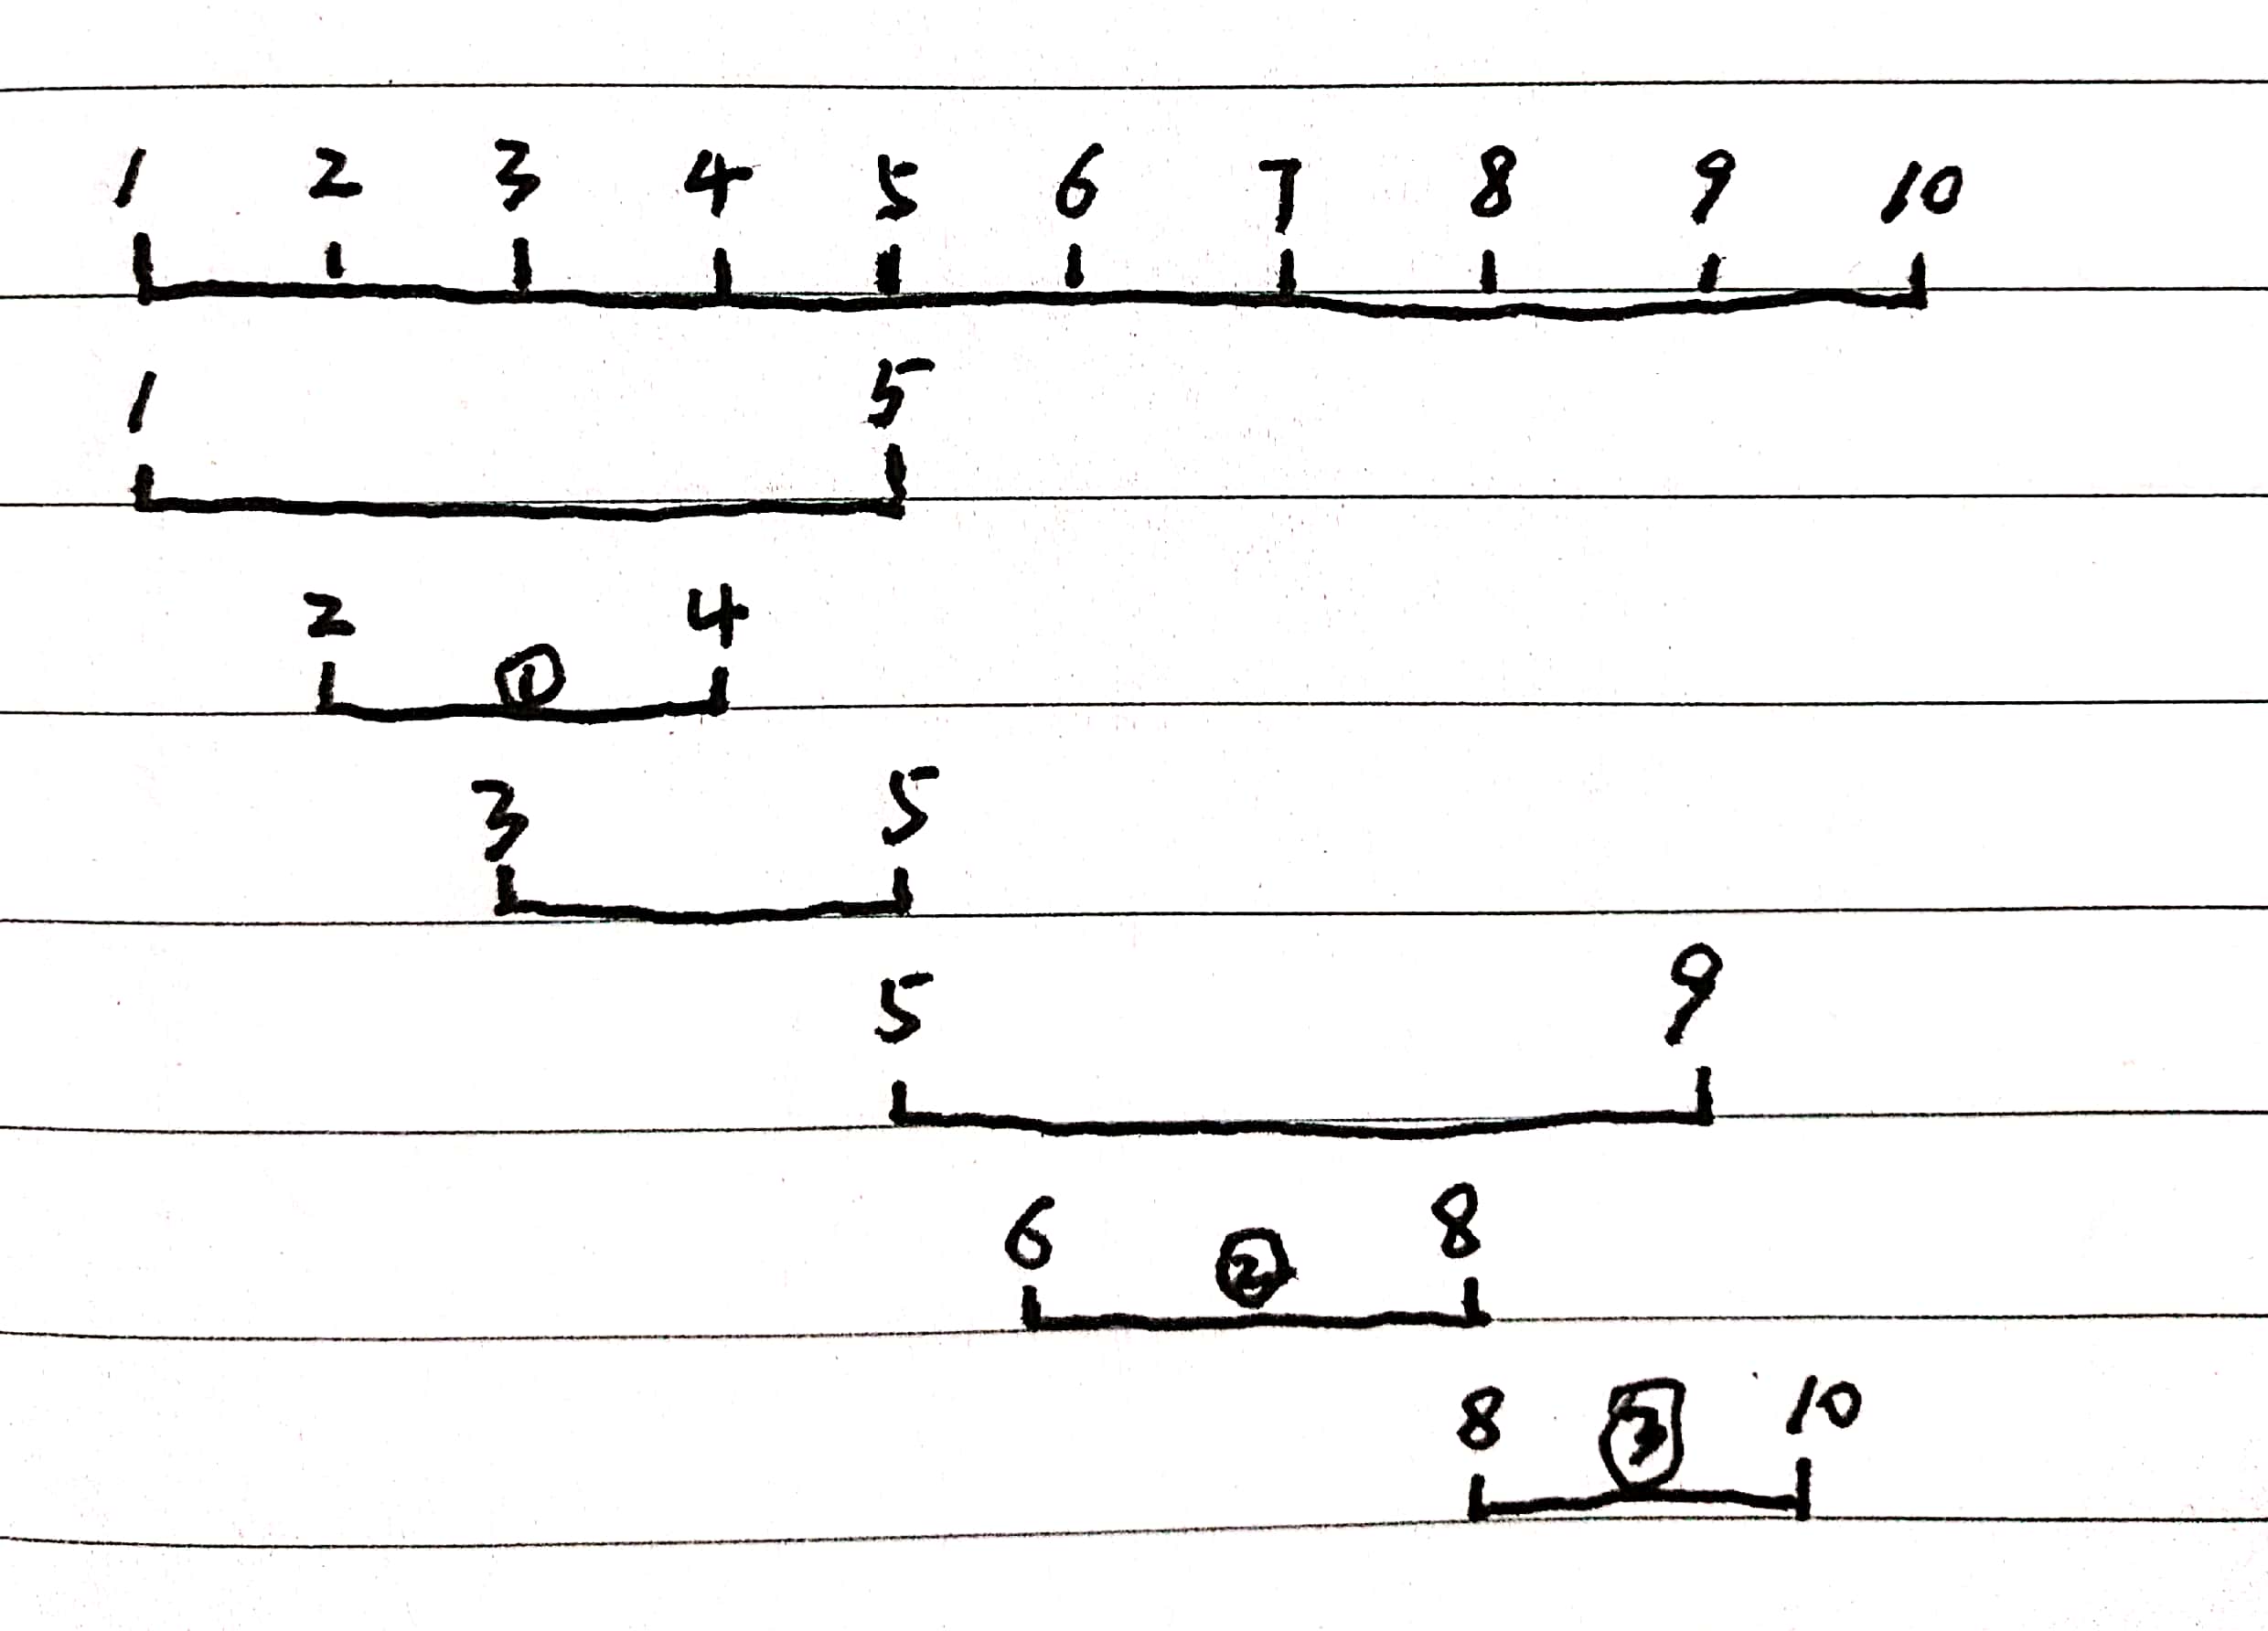 1 2 3 4 5 6 7 8 9 10
1 5
2 ① 4
3 5
5 9
6 ② 8
8 ③ 10